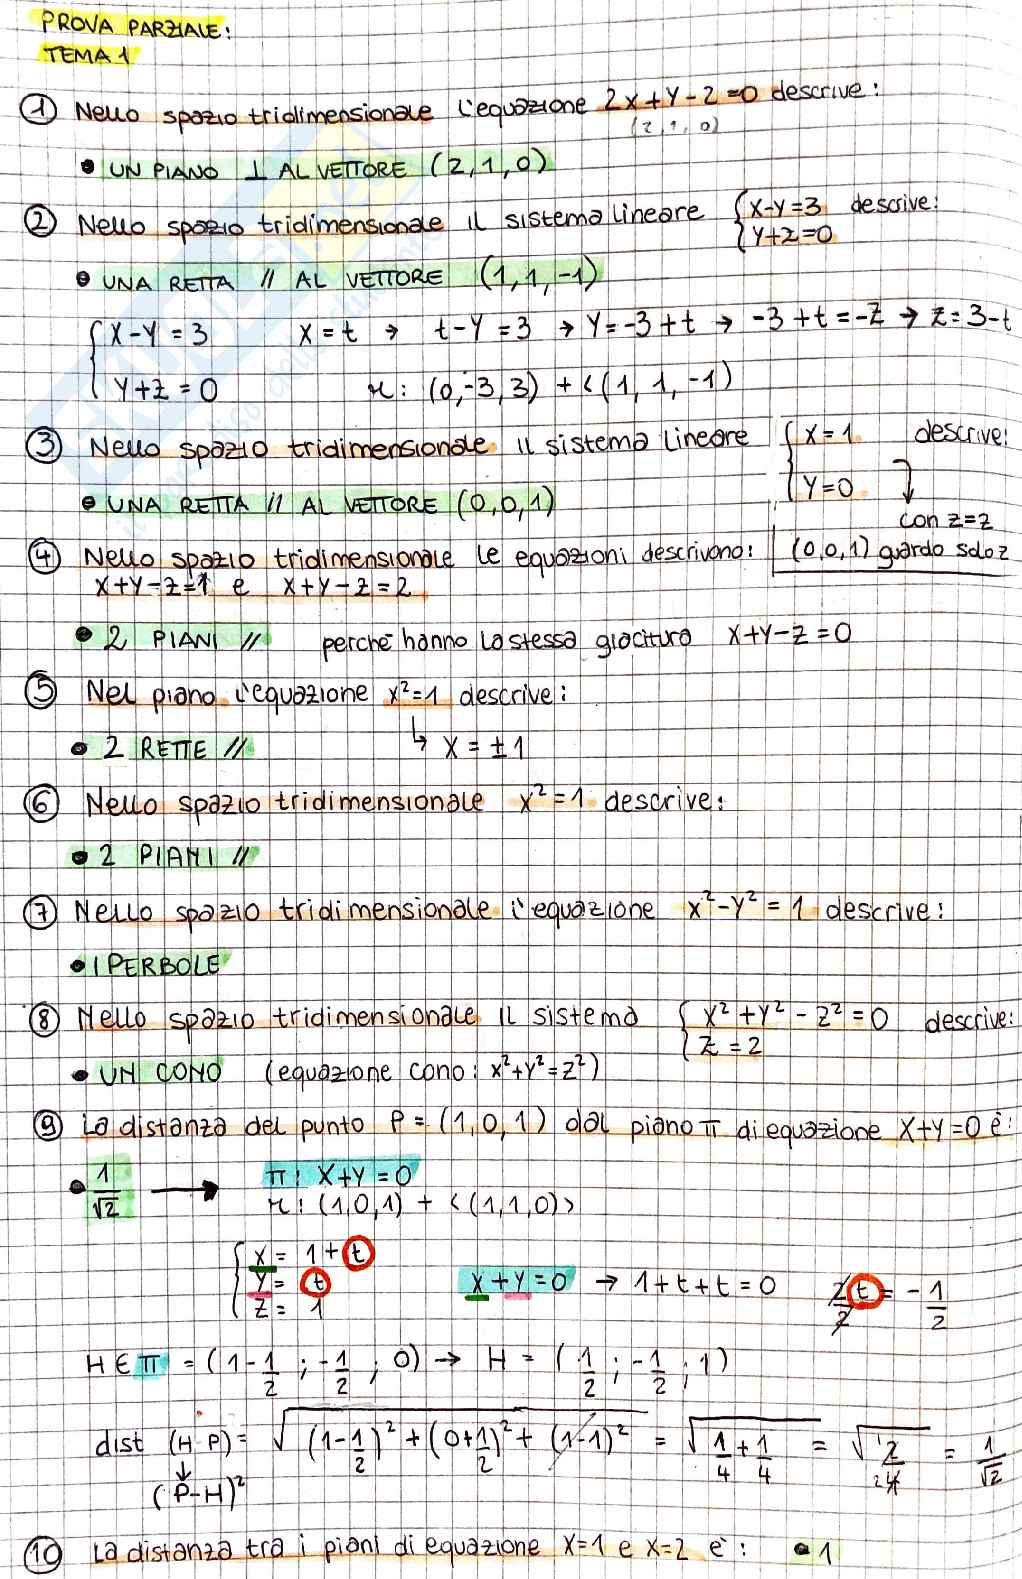 PROVA PARZIALE:
TEMA 1
① Nello spazio tridimensionale l'equazione 2x+y-2=0 descrive:
(2,1,0)
• UN PIANO ⊥ AL VETTORE (2,1,0)
② Nello spazio tridimensionale il sistema lineare { x-y=3 descrive:
{ y+z=0
• UNA RETTA // AL VETTORE (1,1,-1)
{ x-y=3 x=t → t-y=3 → y=-3+t → -3+t=-z → z=3-t
{ y+z=0 r: (0,-3,3) + <(1,1,-1)
③ Nello spazio tridimensionale il sistema lineare { x=1 descrive:
{ y=0
• UNA RETTA // AL VETTORE (0,0,1)
con z=z
④ Nello spazio tridimensionale le equazioni descrivono: (0,0,1) guardo solo z
x+y-z=1 e x+y-z=2
• 2 PIANI // perché hanno la stessa giacitura x+y-z=0
⑤ Nel piano l'equazione x²=1 descrive:
• 2 RETTE // ↳ x=±1
⑥ Nello spazio tridimensionale x²=1 descrive:
• 2 PIANI //
⑦ Nello spazio tridimensionale l'equazione x²-y²=1 descrive:
• IPERBOLE
⑧ Nello spazio tridimensionale il sistema { x²+y²-z²=0 descrive:
{ z=2
• UN CONO (equazione cono: x²+y²=z²)
⑨ La distanza del punto P=(1,0,1) dal piano π di equazione x+y=0 è:
• 1/√2 → π: x+y=0
r: (1,0,1) + <(1,1,0)>
{ x=1+t
{ y=t x+y=0 → 1+t+t=0 2t/2=-1/2
{ z=1
H∈π=(1-1/2;-1/2;0) → H=(1/2;-1/2;1)
dist (H P)=√(1-1/2)²+(0+1/2)²+(1-1)² = √1/4+1/4 = √2/4 2 = 1/√2
↓
(P-H)²
⑩ La distanza tra i piani di equazione x=1 e x=2 è: • 1